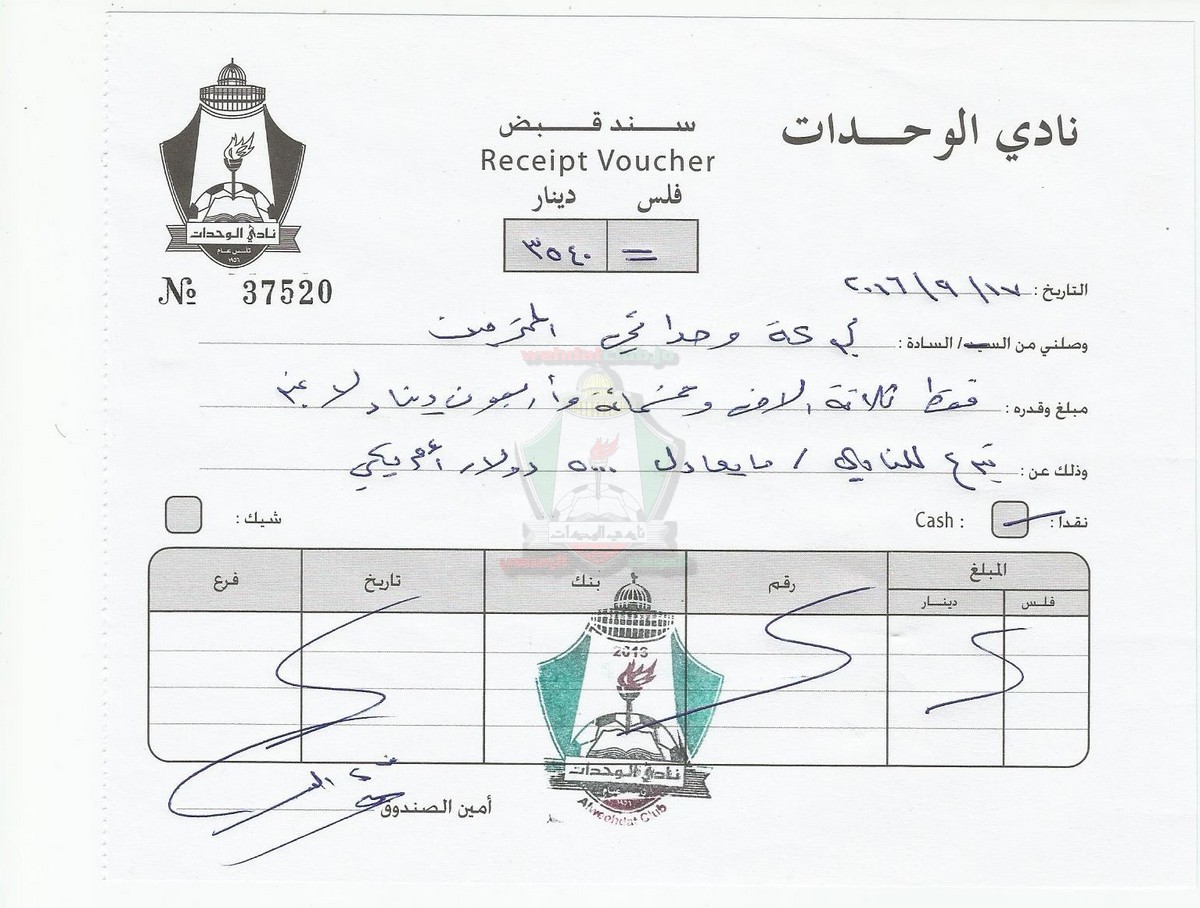 نادي الوحدات
سند قبض
Receipt Voucher
فلس دينار
= ٣٥٤٠
نادي الوحدات
تأسس عام
١٩٥٦
№ 37520
التاريخ : ١٧ / ٩ / ٢٠١٦
وصلني من السيد / السادة : وحداتي المغتربين
مبلغ وقدره : فقط ثلاثة الاف وخمسمائة وأربعون دينار لا غير
وذلك عن : تبرع للنادي / ما يعادل ٥٠٠٠ دولار أمريكي
نقدا : Cash : شيك :
المبلغ رقم بنك تاريخ فرع
فلس دينار
2013
نادي الوحدات
١٩٥٦
Alweehdat Club
أمين الصندوق